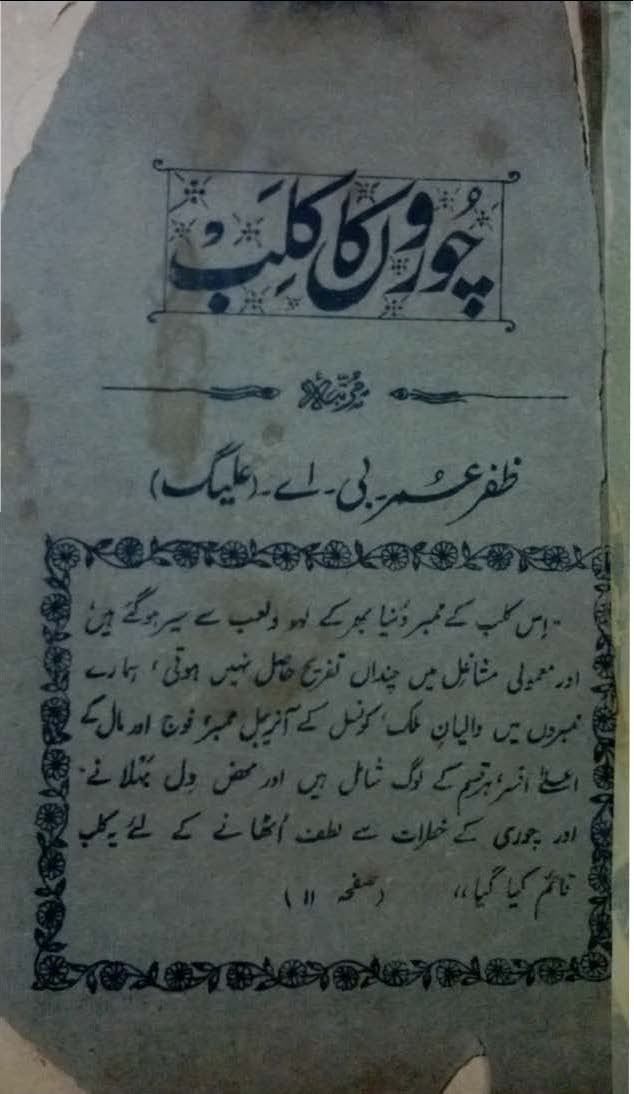 چوروں کا کلب
مرتبہ
ظفر عمر۔ بی۔ اے۔ (علیگ)
"اِس کلب کے ممبر دُنیا بھر کے لہو و لعب سے سیر ہو گئے ہیں
اور معمولی مشاغل میں چنداں تفریح حاصل نہیں ہوتی، ہمارے
ممبروں میں والیانِ ملک، کونسل کے آنریبل ممبر، فوج اور مال کے
اعلےٰ افسر، ہر قسم کے لوگ شامل ہیں اور محض دِل بہلانے
اور چوری کے خطرات سے لطف اُٹھانے کے لئے یہ کلب
قائم کیا گیا" (صفحہ ۱۱)